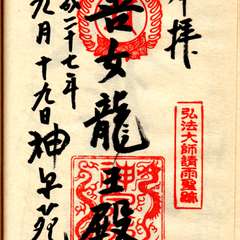 奉拝
弘法大師請雨聖跡
善女龍王殿
平成二十七年
九月十九日神泉苑